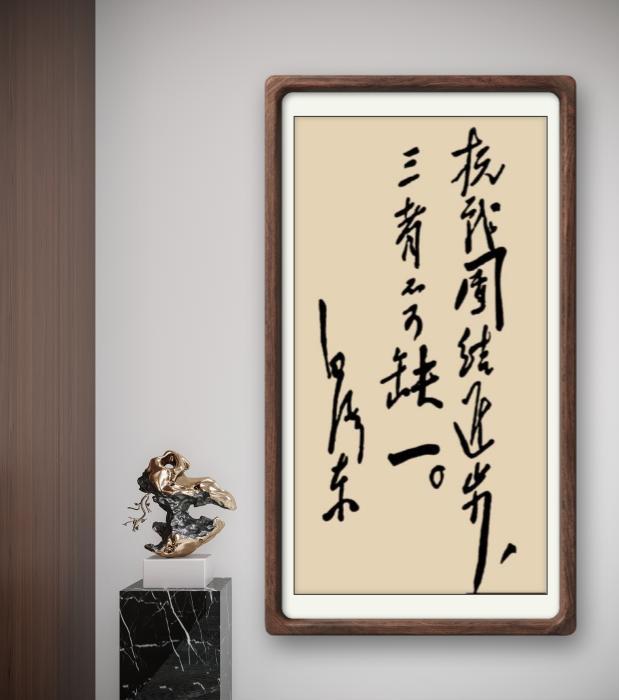 抗战團结進步，
三者不可缺一。
毛泽东